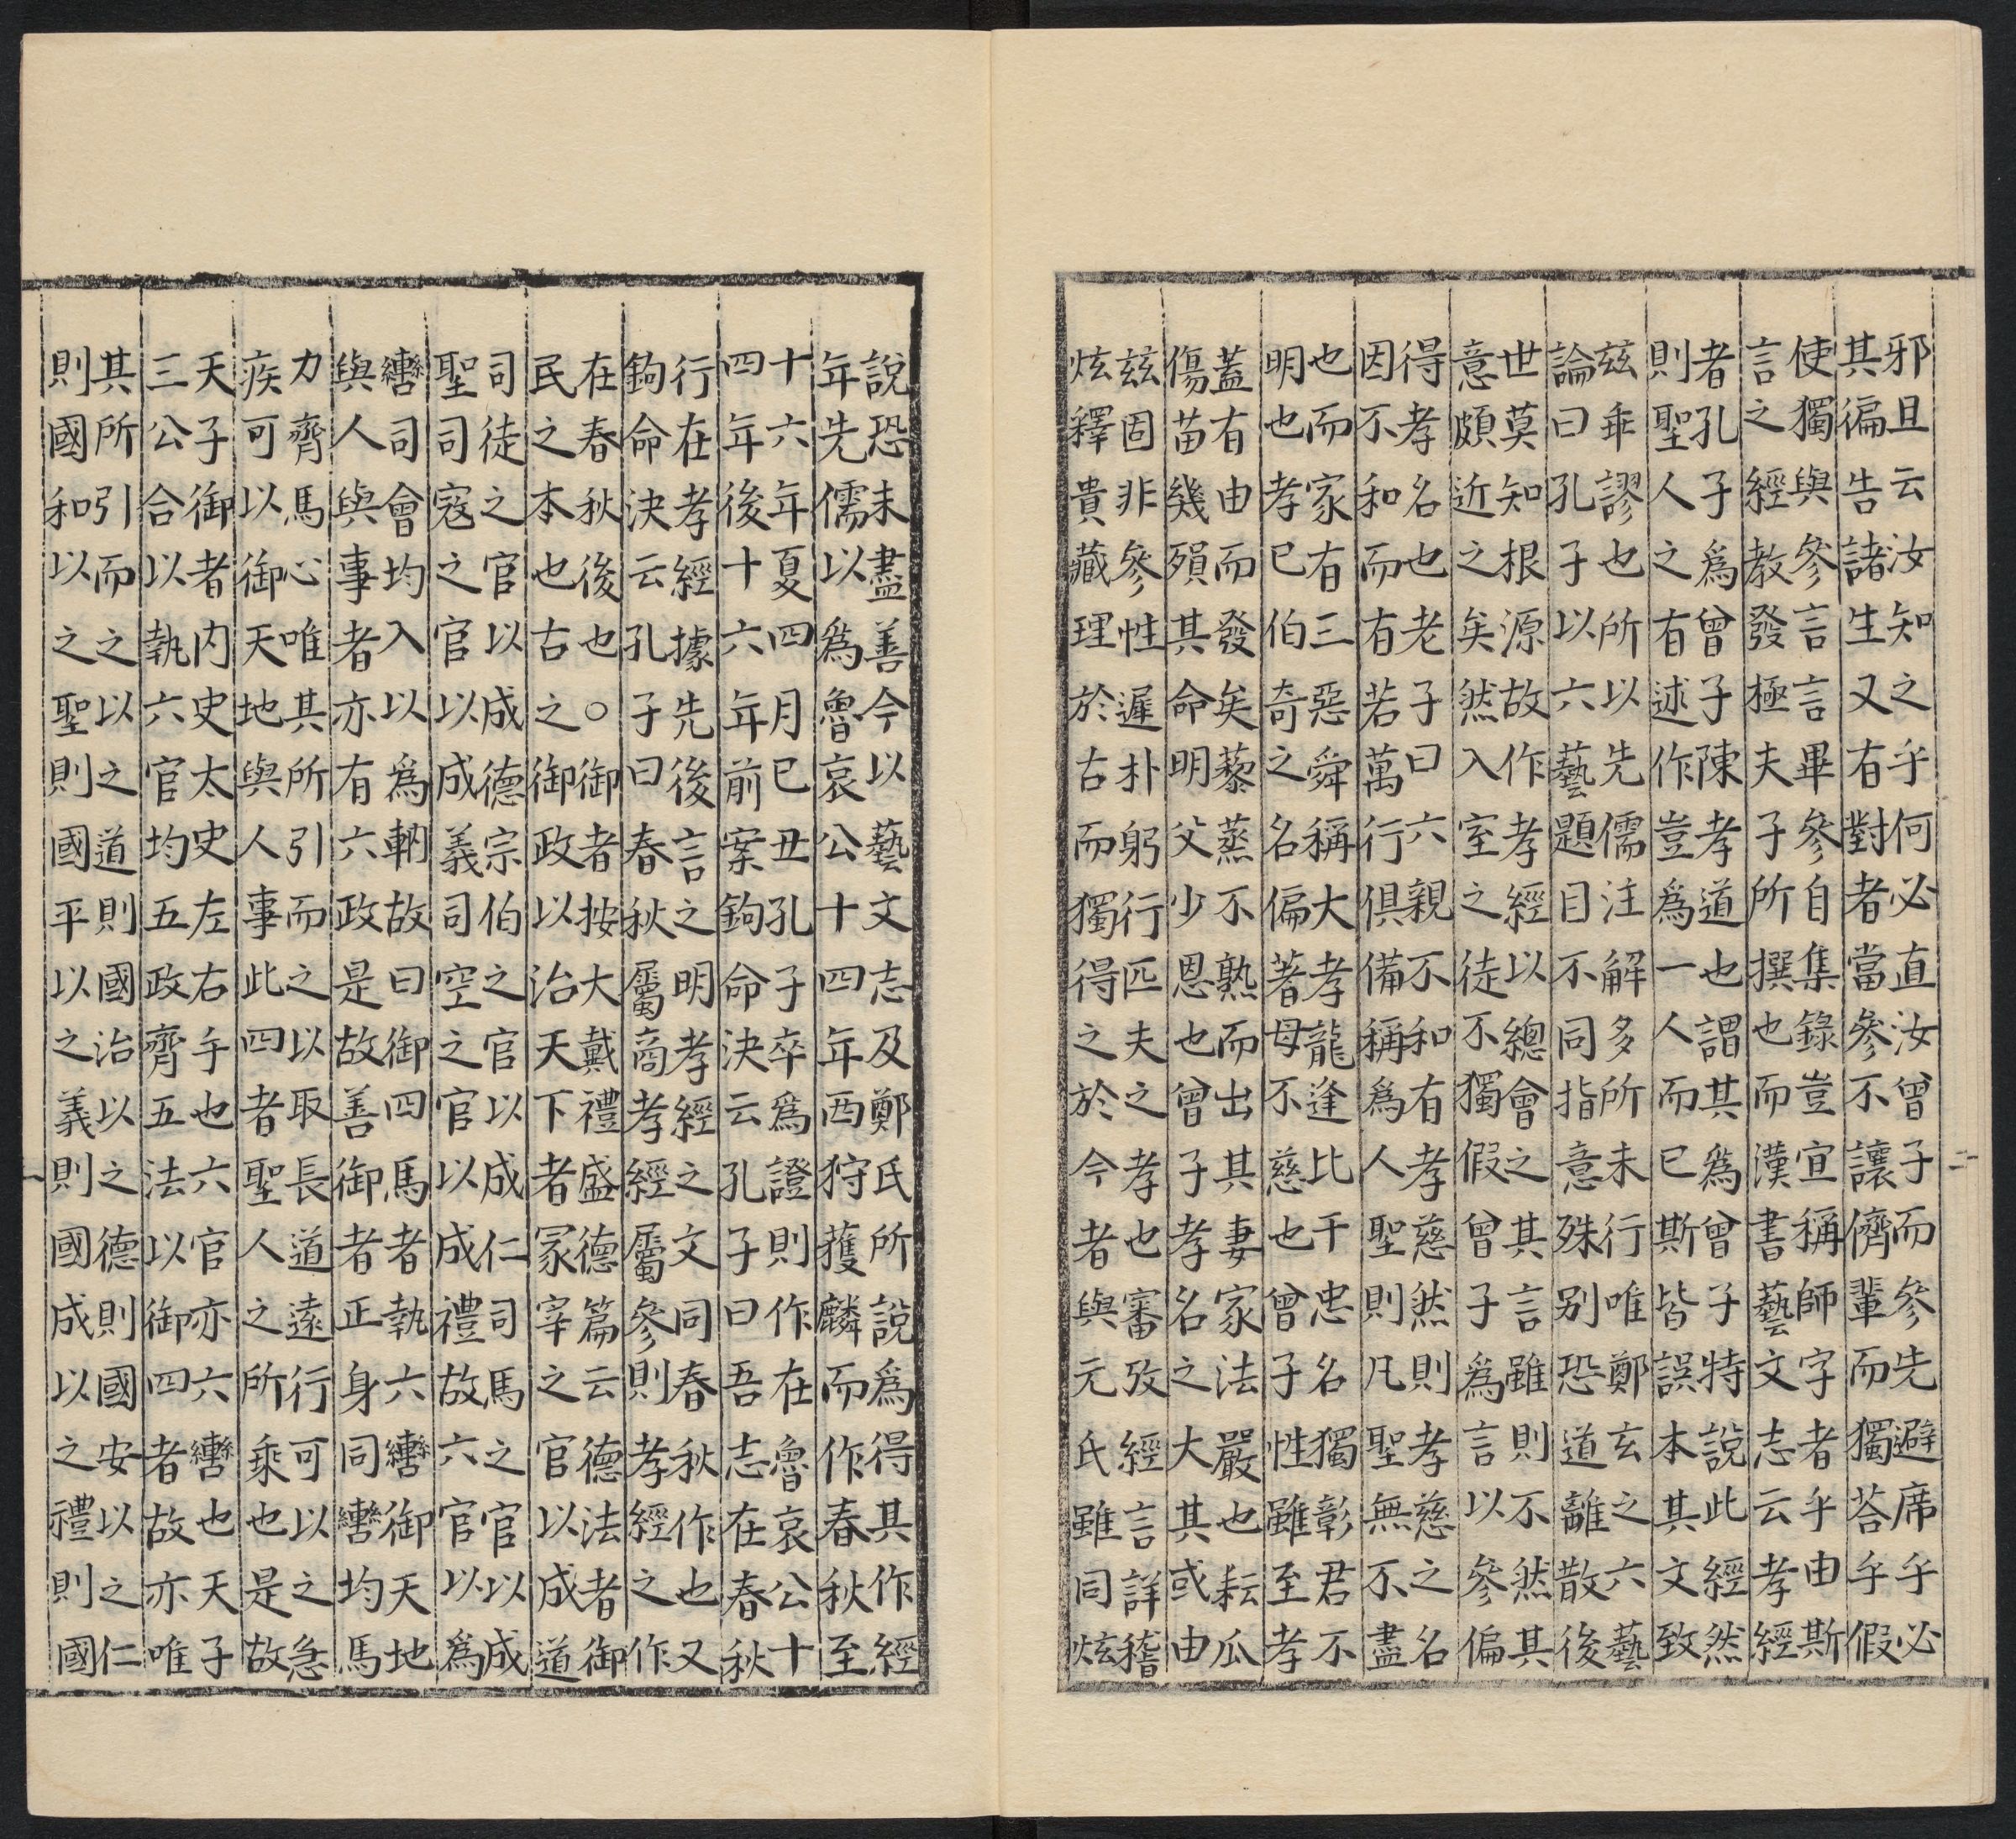 邪且云汝知之乎何必直汝曾子而參先避席乎必
其徧告諸生又有對者當參不讓儕輩而獨荅乎假
使獨與參言言畢參自集錄豈宜稱師字者乎由斯
言之經教發極夫子所撰也而漢書藝文志云孝經
者孔子爲曾子陳孝道也謂其爲曾子特說此經然
則聖人之有述作豈爲一人而已斯皆誤本其文致
茲乖謬也所以先儒注解多所未行唯鄭玄之六藝
論曰孔子以六藝題目不同指意殊别恐道離散後
世莫知根源故作孝經以總會之其言雖則不然其
意頗近之矣然入室之徒不獨假曾子爲言以參偏
得孝名也老子曰六親不和有孝慈然則孝慈之名
因不和而有若萬行俱備稱爲人聖則凡聖無不盡
也而家有三惡舜稱大孝龍逢比干忠名獨彰君不
明也孝已伯奇之名偏著母不慈也曾子性雖至孝
蓋有由而發矣藜蒸不熟而出其妻家法嚴也耘瓜
傷苗幾殞其命明父少恩也曾子孝名之大其或由
茲固非參性遲朴躬行匹夫之孝也審攷經言詳稽
炫釋貴藏理於古而獨得之於今者與元氏雖同炫
說恐未盡善今以藝文志及鄭氏所說爲得其作經
年先儒以爲魯哀公十四年西狩獲麟而作春秋至
十六年夏四月已丑孔子卒爲證則作在魯哀公十
四年後十六年前案鉤命決云孔子曰吾志在春秋
行在孝經據先後言之明孝經之文同春秋作也又
鉤命決云孔子曰春秋屬商孝經屬參則孝經之作
在春秋後也○御者按大戴禮盛德篇云德法者御
民之本也古之御政以治天下者冢宰之官以成道
司徒之官以成德宗伯之官以成仁司馬之官以成
聖司寇之官以成義司空之官以成禮故六官以爲
轡司會均入以爲軜故曰御四馬者執六轡御天地
與人與事者亦有六政是故善御者正身同轡均馬
力齊馬心唯其所引而之以取長道遠行可以之急
疾可以御天地與人事此四者聖人之所乘也是故
天子御者内史太史左右手也六官亦六轡也天子
三公合以執六官均五政齊五法以御四者故亦唯
其所引而之以之道則國治以之德則國安以之仁
則國和以之聖則國平以之義則國成以之禮則國